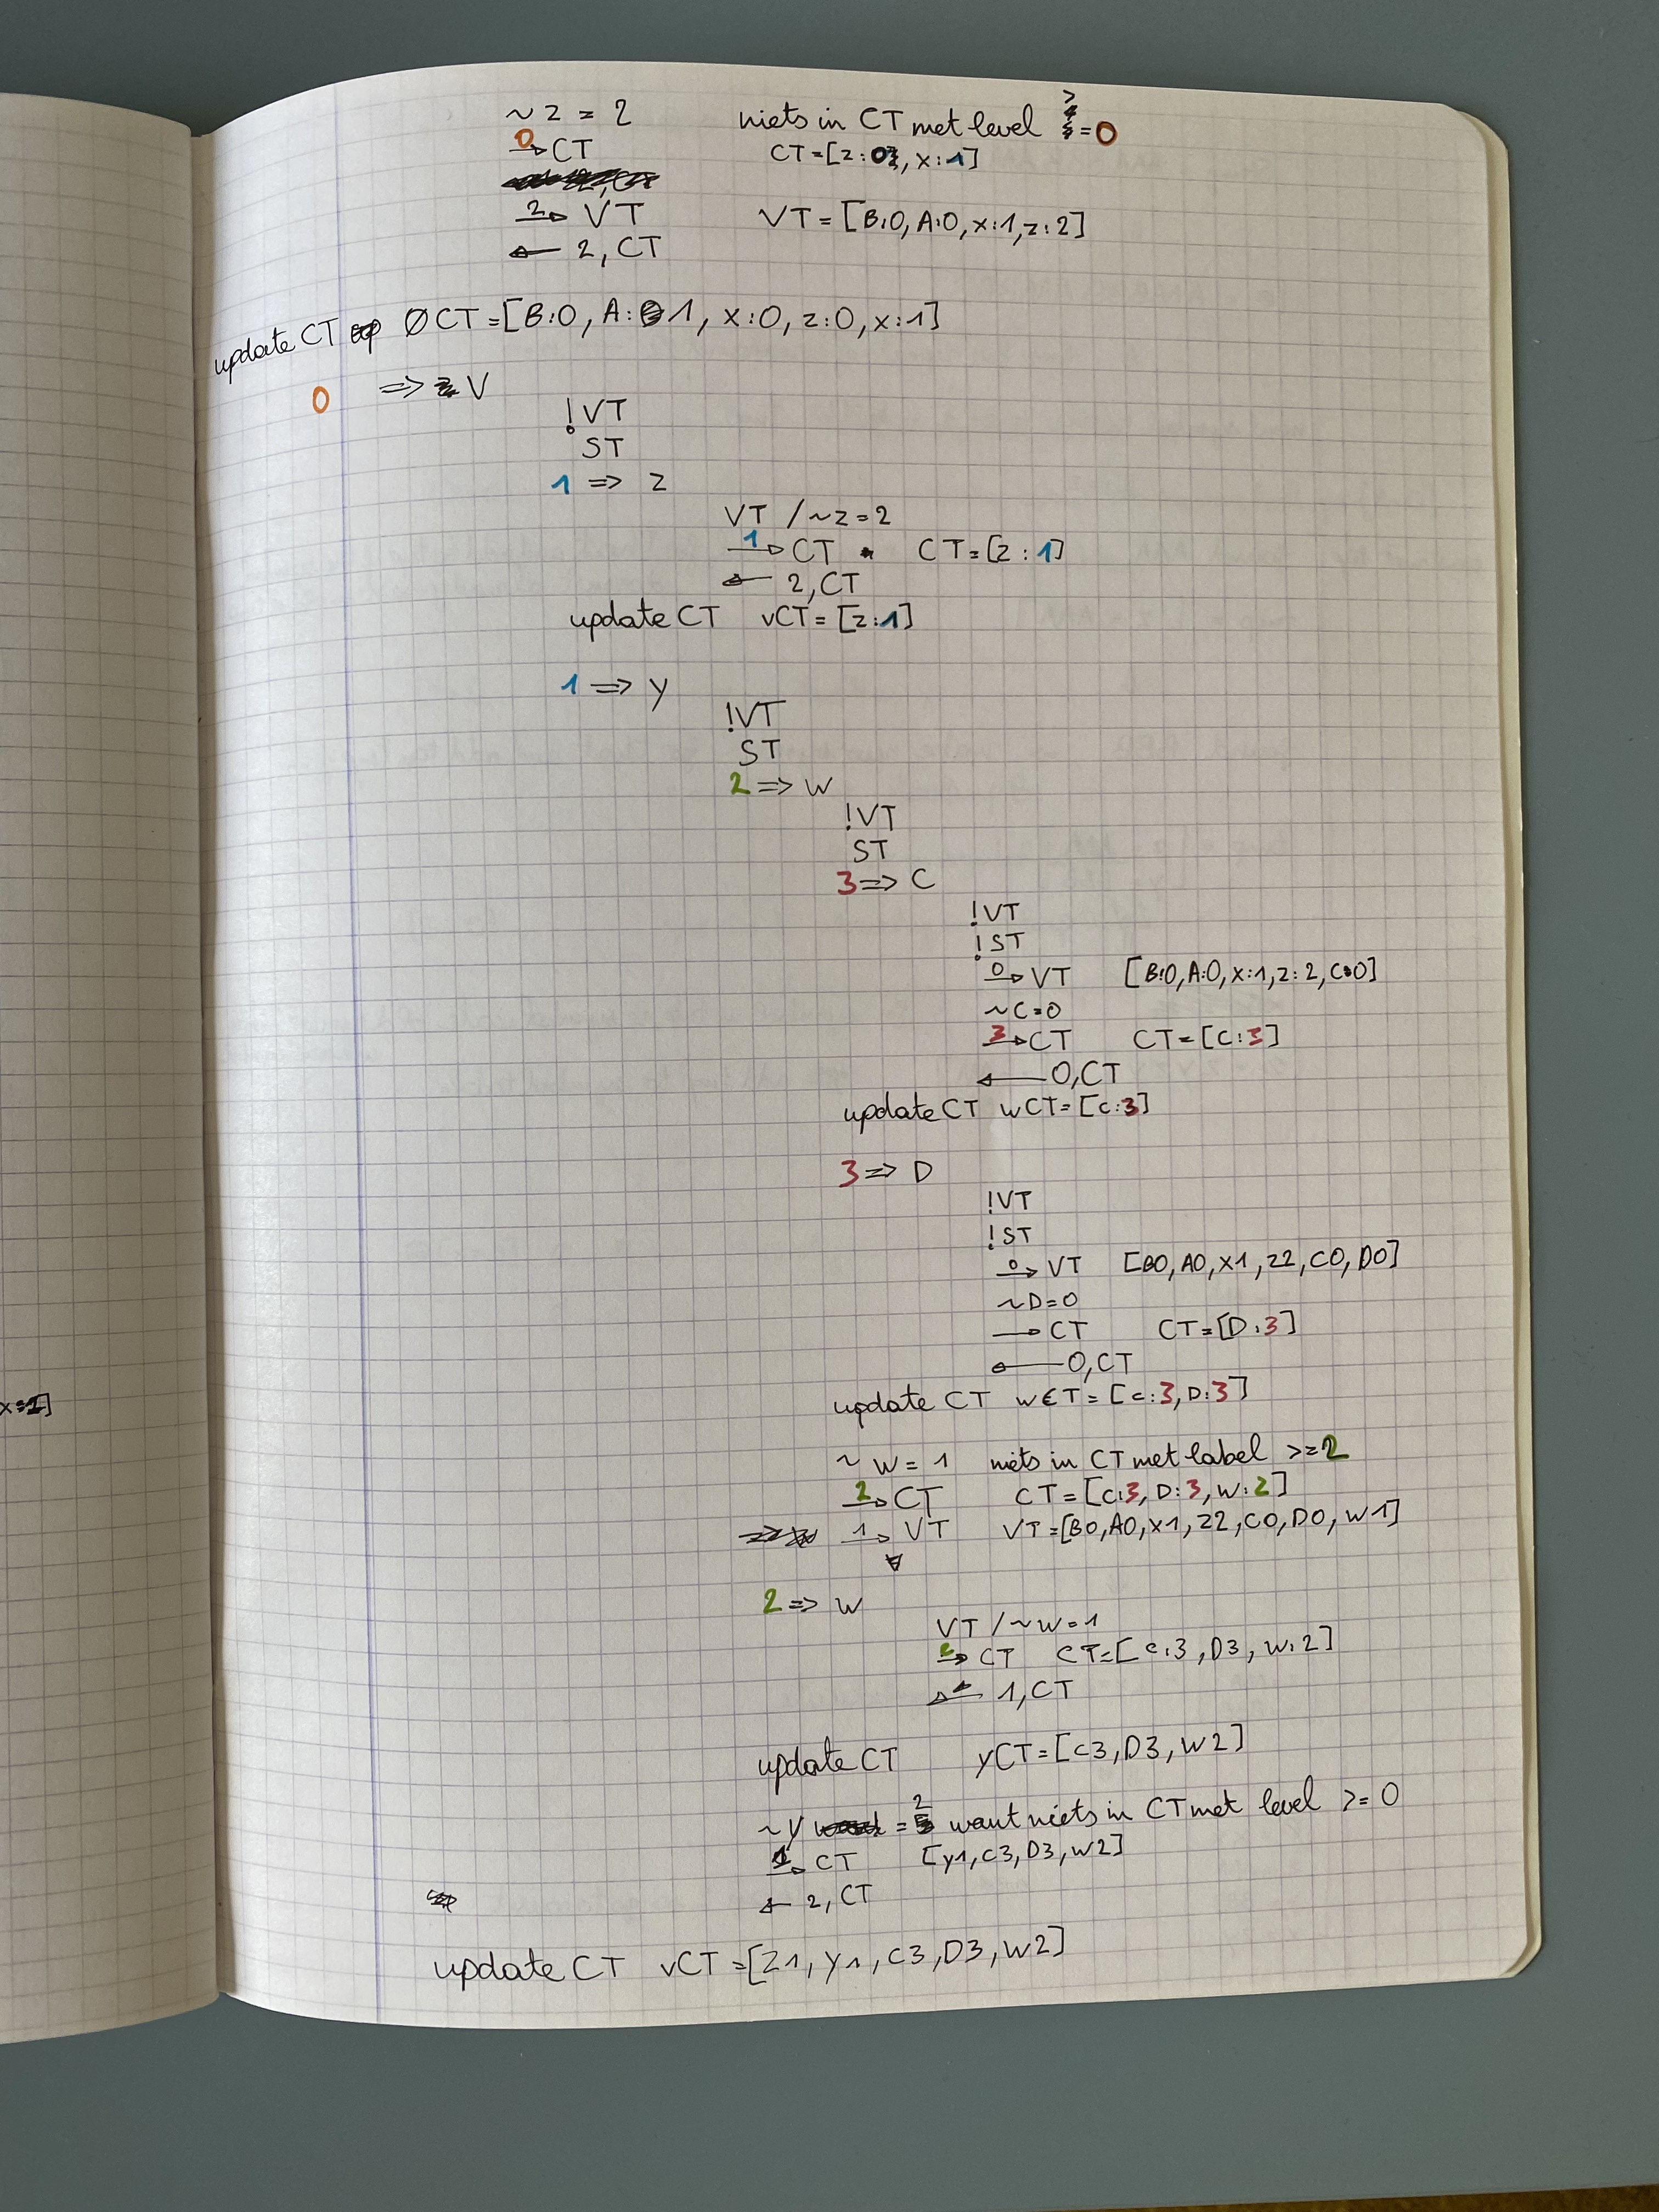 ~ z = 2 niets in CT met level >= 0
0→ CT CT=[z:0, x:1]
2→ VT VT=[B:0, A:0, x:1, z:2]
← 2, CT
update CT ØCT=[B:0, A:1, x:0, z:0, x:1]
0 => V
!VT
ST
1 => z
VT /~z=2
1→ CT CT=[z:1]
← 2, CT
update CT vCT=[z:1]
1 => y
!VT
ST
2 => w
!VT
ST
3 => C
!VT
!ST
0→ VT [B:0, A:0, x:1, z:2, C:0]
~C=0
3→ CT CT=[C:3]
← 0, CT
update CT wCT=[c:3]
3 => D
!VT
!ST
0→ VT [B0, A0, x1, z2, C0, D0]
~D=0
→ CT CT=[D:3]
← 0, CT
x=1]
update CT wCT=[c:3, D:3]
~ w = 1 niets in CT met label >=2
2→ CT CT=[c:3, D:3, w:2]
1→ VT VT=[B0, A0, x1, z2, C0, D0, w1]
2 => w
VT /~w=1
→ CT CT=[c:3, D3, w:2]
← 1, CT
update CT yCT=[c3, D3, w2]
~ y = 2 want niets in CT met level >= 0
1→ CT [y1, c3, D3, w2]
← 2, CT
update CT vCT=[z1, y1, c3, D3, w2]